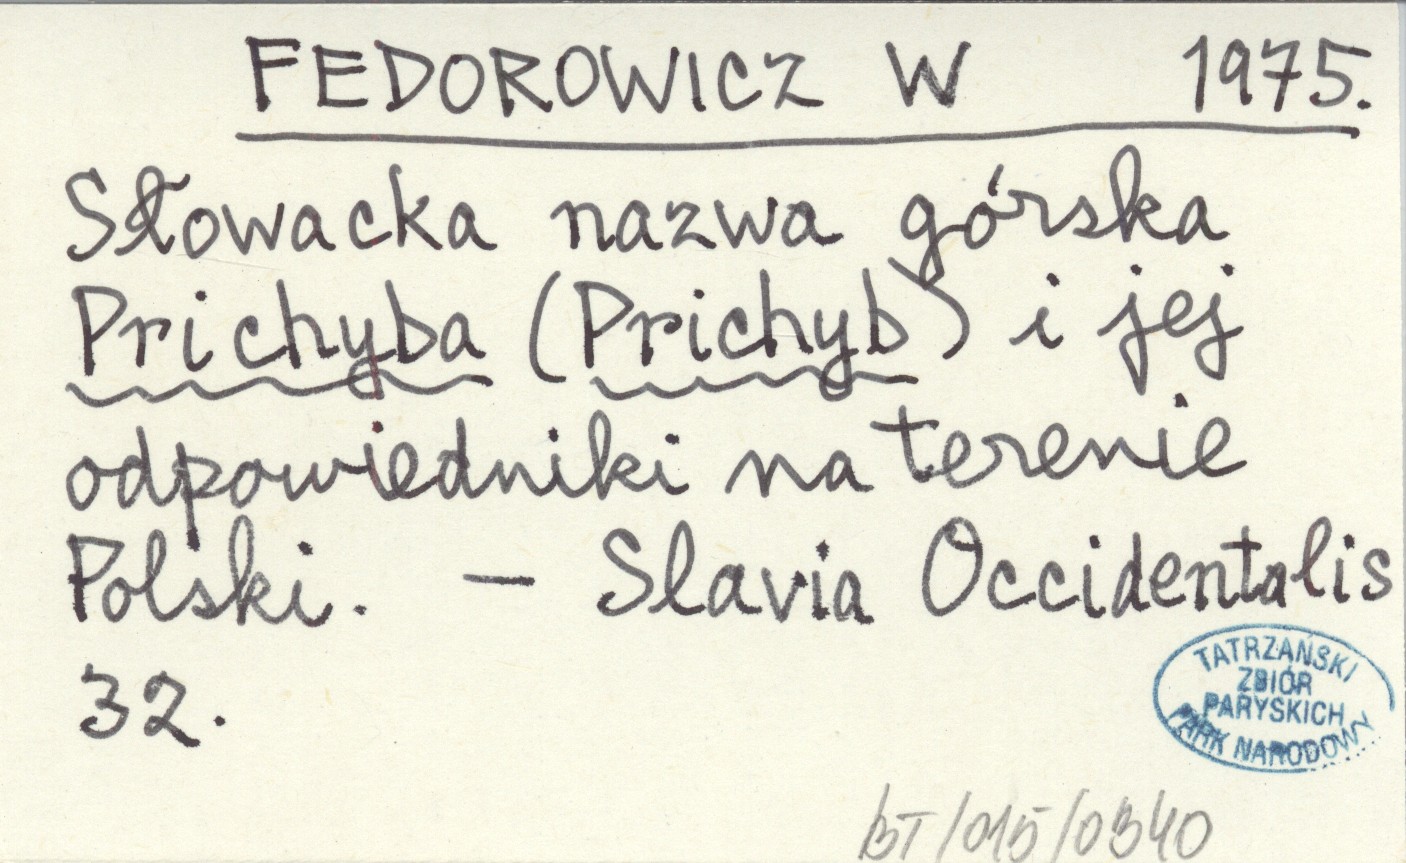 FEDOROWICZ W 1975.
Słowacka nazwa górska
Prichyba (Prichyb) i jej
odpowiedniki na terenie
Polski. – Slavia Occidentalis
32.
TATRZAŃSKI
ZBIÓR
PARYSKICH
PARK NARODOWY
BT/015/0340